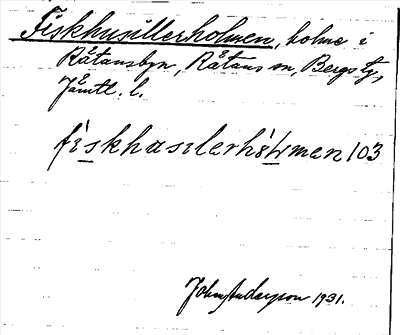 Fiskhusillerholmen, holme i
Råtansbyn, Råtans sn, Bergs tg,
Jämtl. l.
fiskhasılerhólmen 103
John Andersson 1931.